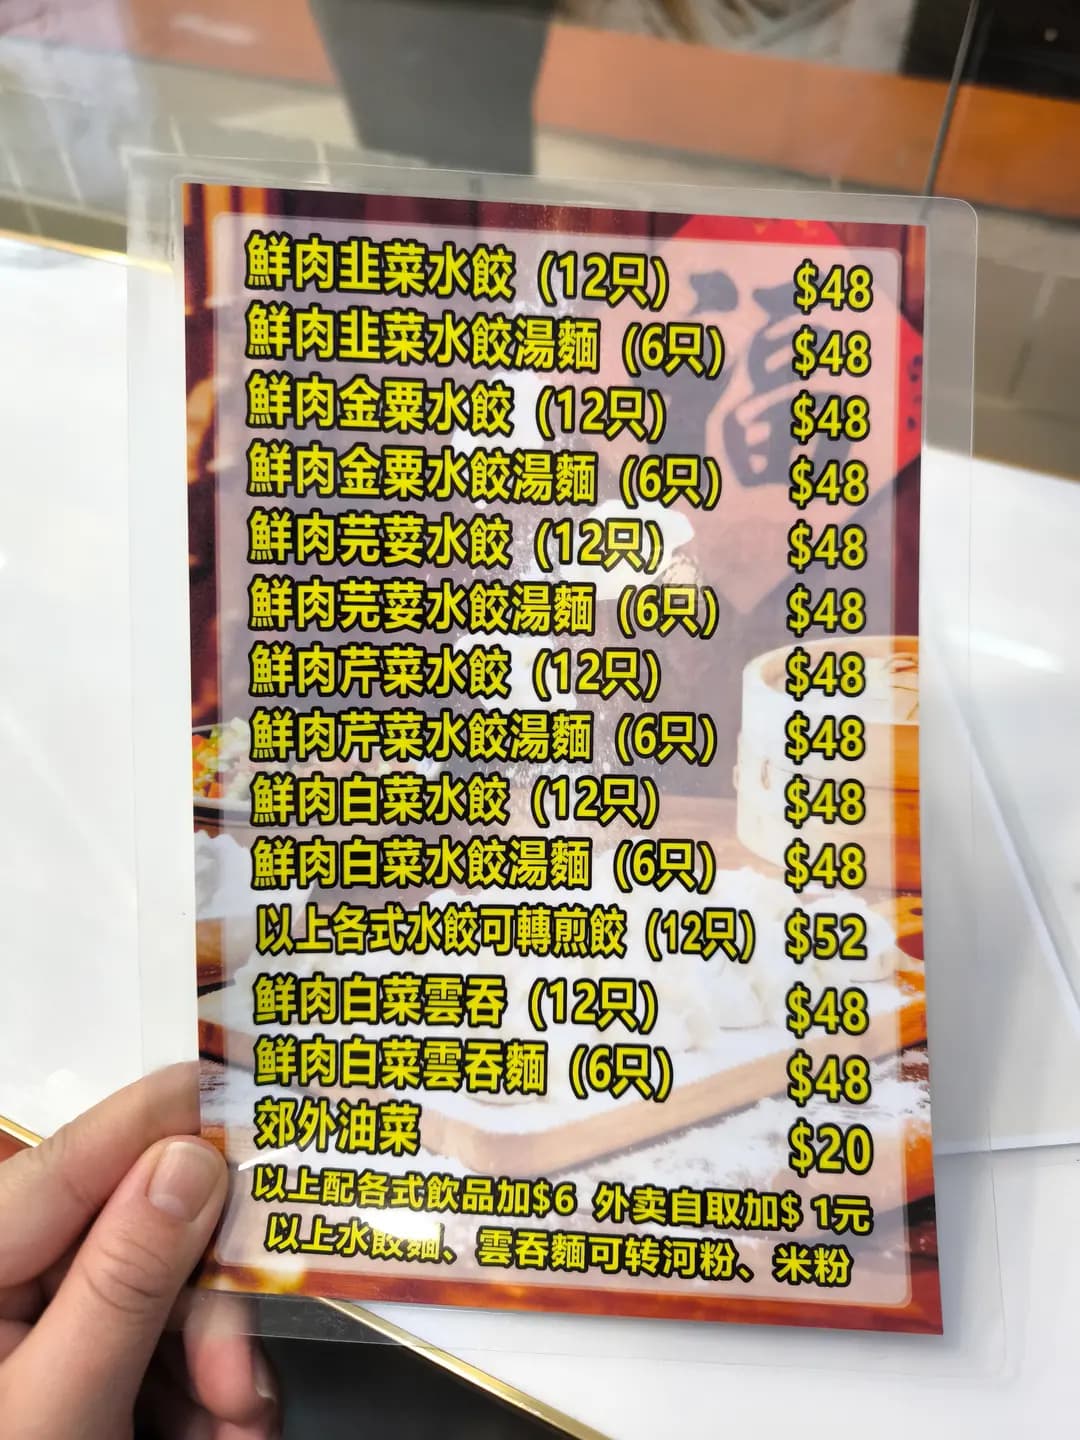 鮮肉韭菜水餃 (12只) $48
鮮肉韭菜水餃湯麵 (6只) $48
鮮肉金粟水餃 (12只) $48
鮮肉金粟水餃湯麵 (6只) $48
鮮肉芫荽水餃 (12只) $48
鮮肉芫荽水餃湯麵 (6只) $48
鮮肉芹菜水餃 (12只) $48
鮮肉芹菜水餃湯麵 (6只) $48
鮮肉白菜水餃 (12只) $48
鮮肉白菜水餃湯麵 (6只) $48
以上各式水餃可轉煎餃 (12只) $52
鲜肉白菜雲吞 (12只) $48
鲜肉白菜雲吞麵 (6只) $48
郊外油菜 $20
以上配各式飲品加$6 外卖自取加$ 1元
以上水餃麵、雲吞麵可转河粉、米粉
福